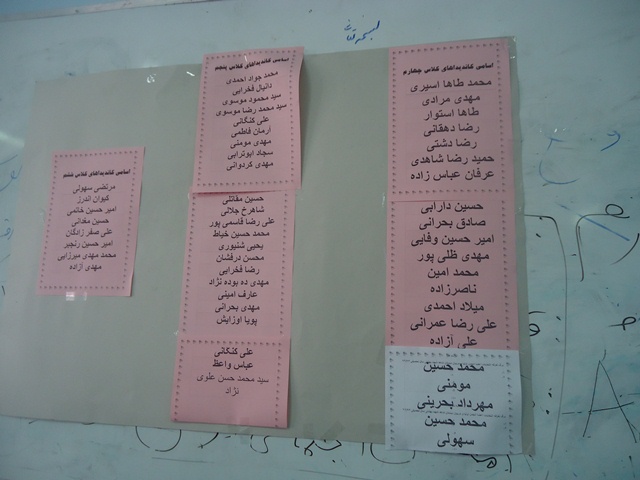 اسامی کاندیداهای کلاس چهارم
محمد طاها اسیری
مهدی مرادی
طاها استوار
رضا دهقانی
رضا دشتی
حمید رضا شاهدی
عرفان عباس زاده
حسین دارابی
صادق بحرانی
امیر حسین وفایی
مهدی ظلی پور
محمد امین
ناصرزاده
میلاد احمدی
علی رضا عمرانی
علی آزاده
محمد حسین
مومنی
مهرداد بحرینی
محمد حسین
سهولی
اسامی کاندیداهای کلاس پنجم
محمد جواد احمدی
دانیال فخرایی
سید محمود موسوی
سید محمد رضا موسوی
علی کنگانی
آرمان فاطمی
مهدی مومنی
سجاد ابوترابی
مهدی کردوانی
حسین مقاتلی
شاهرخ جلالی
علی رضا قاسمی پور
محمد حسین خیاط
یحیی شنبوری
محسن درفشان
رضا فخرایی
مهدی ده بوده نژاد
عارف امینی
مهدی بحرانی
پویا اوزایش
علی کنگانی
عباس واعظ
سید محمد حسن علوی
نژاد
اسامی کاندیداهای کلاس ششم
مرتضی سهولی
کیوان اندرز
امیر حسین خاتمی
حسین مغدانی
علی صفر زادگان
امیر حسین رنجبر
محمد مهدی میرزایی
مهدی آزاده
A